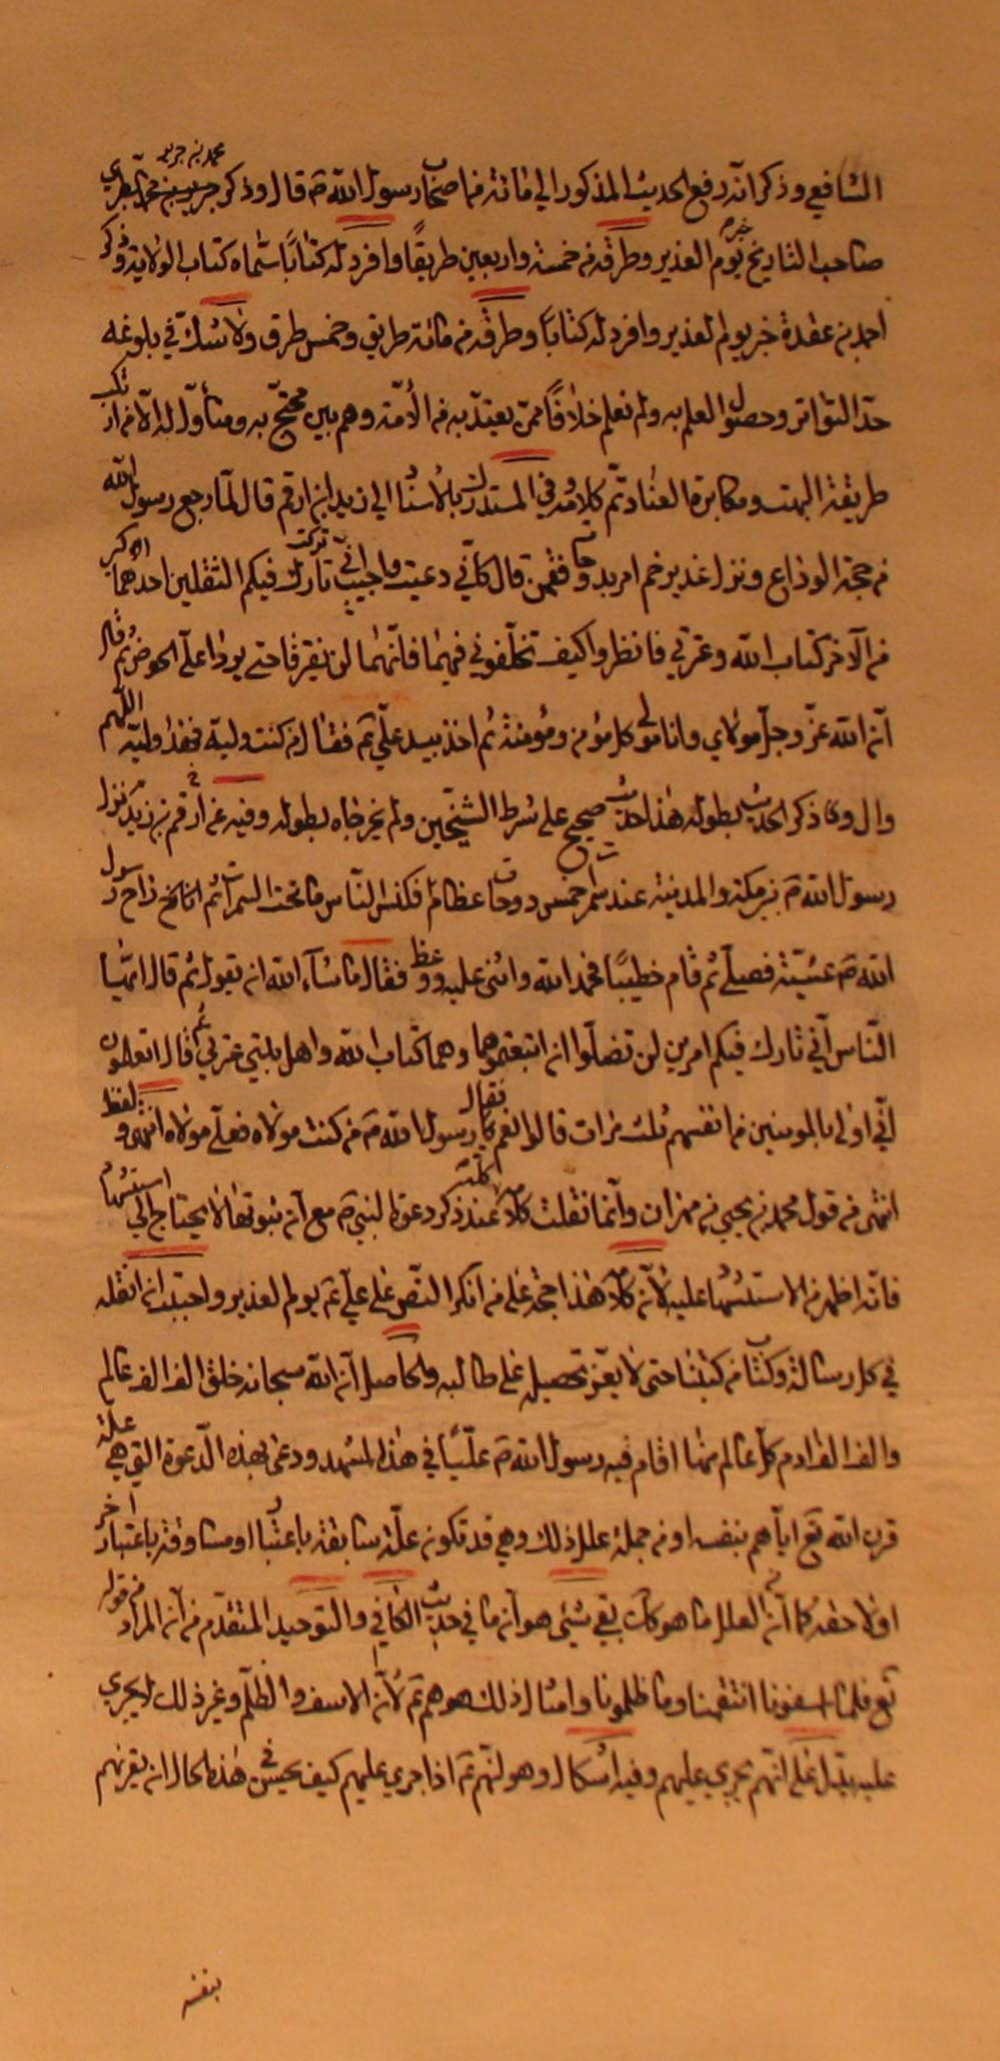 محمد بن جرير
الشافعي وذكر انه رفع الحديث المذكور الي مائة من اصحاب رسول الله ص قال وذكر جرير بن محمد الطبري
صاحب التاريخ خبر يوم الغدير وطرقه من خمسة واربعين طريقًا وافرد له كتابًا سماه كتاب الولاية وذكر
احمد بن عقدة خبر يوم الغدير وافرد له كتابًا وطرقه من مائة طريق وخمس طرق ولا شك في بلوغه
حدّ التواتر وحصول العلم به ولم نعلم خلافًا ممن يعتدّ به من الأمّة وهم بين محتجّ به ومتأوّل له الا من ارتكب
طريقة البهت ومكابرة العناد تمّ كلامه وفي المستدرك بالاسناد الي زيد ابن ارقم قال لمّا رجع رسول الله
من حجة الوداع ونزل غدير خم امر بدوحات فقممن قال كأنّي دعيت فاجيب انّي تركت تارك فيكم الثقلين احدهما اكبر
من الآخر كتاب الله وعترتي فانظروا كيف تخلّفوني فيهما فانّهما لن يفترقا حتي يردا علي الحوض ثم قال
انّ الله عزّ وجلّ مولاي وانا مولي كل مؤمن ومؤمنة ثم اخذ بيد علي ع فقال من كنت وليه فهذا وليّه اللّهم
وال وعاد ذكر الحديث بطوله هذا حديث صحيح علي شرط الشيخين ولم يخرجاه بطوله وفيه عن ارقم بن زيد نزل
رسول الله ص بين مكة والمدينة عند سمرات خمس دوحات عظام فكنس النّاس ما تحت السمرات ثم اناخ راح رسول
الله ص عشيّة فصلّي ثم قام خطيبًا فحمد الله واثني عليه ووعظ فقال ما شاء الله ان يقول ثم قال ايّها
النّاس انّي تارك فيكم امرين لن تضلّوا ان اتبعتموهما وهما كتاب الله واهل بيتي عترتي ثم قال اتعلمون
انّي اولي بالمومنين من انفسهم ثلث مرات قالوا نعم فقال رسول الله ص من كنت مولاه فعليّ مولاه انتهي ولفظ
انتهي من قول محمد بن يحيي بن مهران وانّما نقلت كلامه عند ذكر دعوة النبي ص مع انّ ثبوتها لا يحتاج الي استشهاد
فانّه اظهر من الاستشهاد عليه لانّ كلامه هذا حجة علي من انكر النصّ علي علي ع يوم الغدير واحببت ان انقله
في كل رسالة وكتاب من كتبنا حتي لا يعزّ تحصيله علي طالبه والحاصل انّ الله سبحانه خلق الف الف عالم
والف الف ادم كل عالم منها اقام فيه رسول الله ص عليًّا في هذا المشهد ودعي بهذه الدّعوة التي هي علة
قرن الله تع ايّاهم بنفسه او من جملة علل ذلك وهي قد تكون علّة سابقة باعتبار او مساوقة باعتبار اخر
او لاحقة كما انّ من العلل ما هو كك بقي شيئ هو انّ ما في حديث الكافي والتوحيد المتقدّم من انّ المراد من قوله
تع فلما اسفونا انتقمنا وما ظلمونا وامثال ذلك هو هم ع لانّ الاسف والظلم وغير ذلك لا يجري
عليه بل علي انّهم يجري عليهم وفيه اشكال وهو انّهم ع اذا جري عليهم كيف يحسن في هذه الحال ان يقرنهم
بنفسه